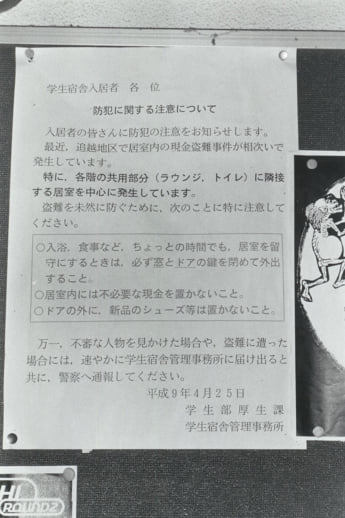 学生宿舎入居者 各 位
防犯に関する注意について
入居者の皆さんに防犯の注意をお知らせします。
最近，追越地区で居室内の現金盗難事件が相次いで
発生しています。
特に，各階の共用部分（ラウンジ，トイレ）に隣接
する居室を中心に発生しています。
盗難を未然に防ぐために，次のことに特に注意して
ください。
○入浴，食事など，ちょっとの時間でも，居室を留
守にするときは，必ず窓とドアの鍵を閉めて外出
すること。
○居室内には不必要な現金を置かないこと。
○ドアの外に，新品のシューズ等は置かないこと。
万一，不審な人物を見かけた場合や，盗難に遭った
場合には，速やかに学生宿舎管理事務所に届け出ると
共に，警察へ通報してください。
平成９年４月２５日
学 生 部 厚 生 課
学生宿舎管理事務所
HI
ROUNDZ